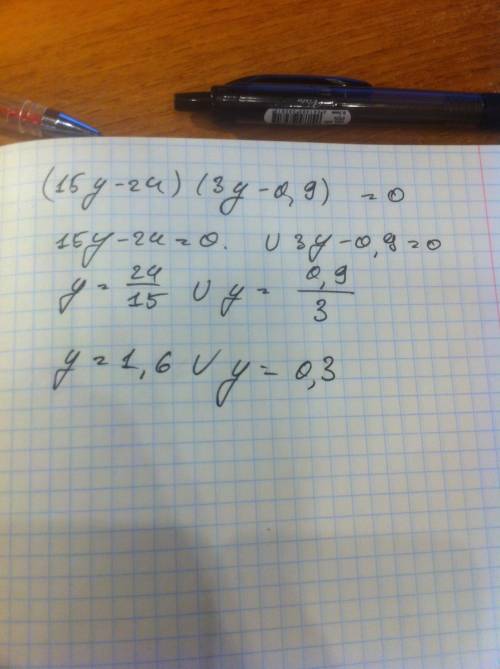 (15y-24) (3y-0,9) =0
15y-24=0. ∪ 3y-0,9=0
y = 24/15 ∪ y = 0,9/3
y=1,6 ∪ y = 0,3